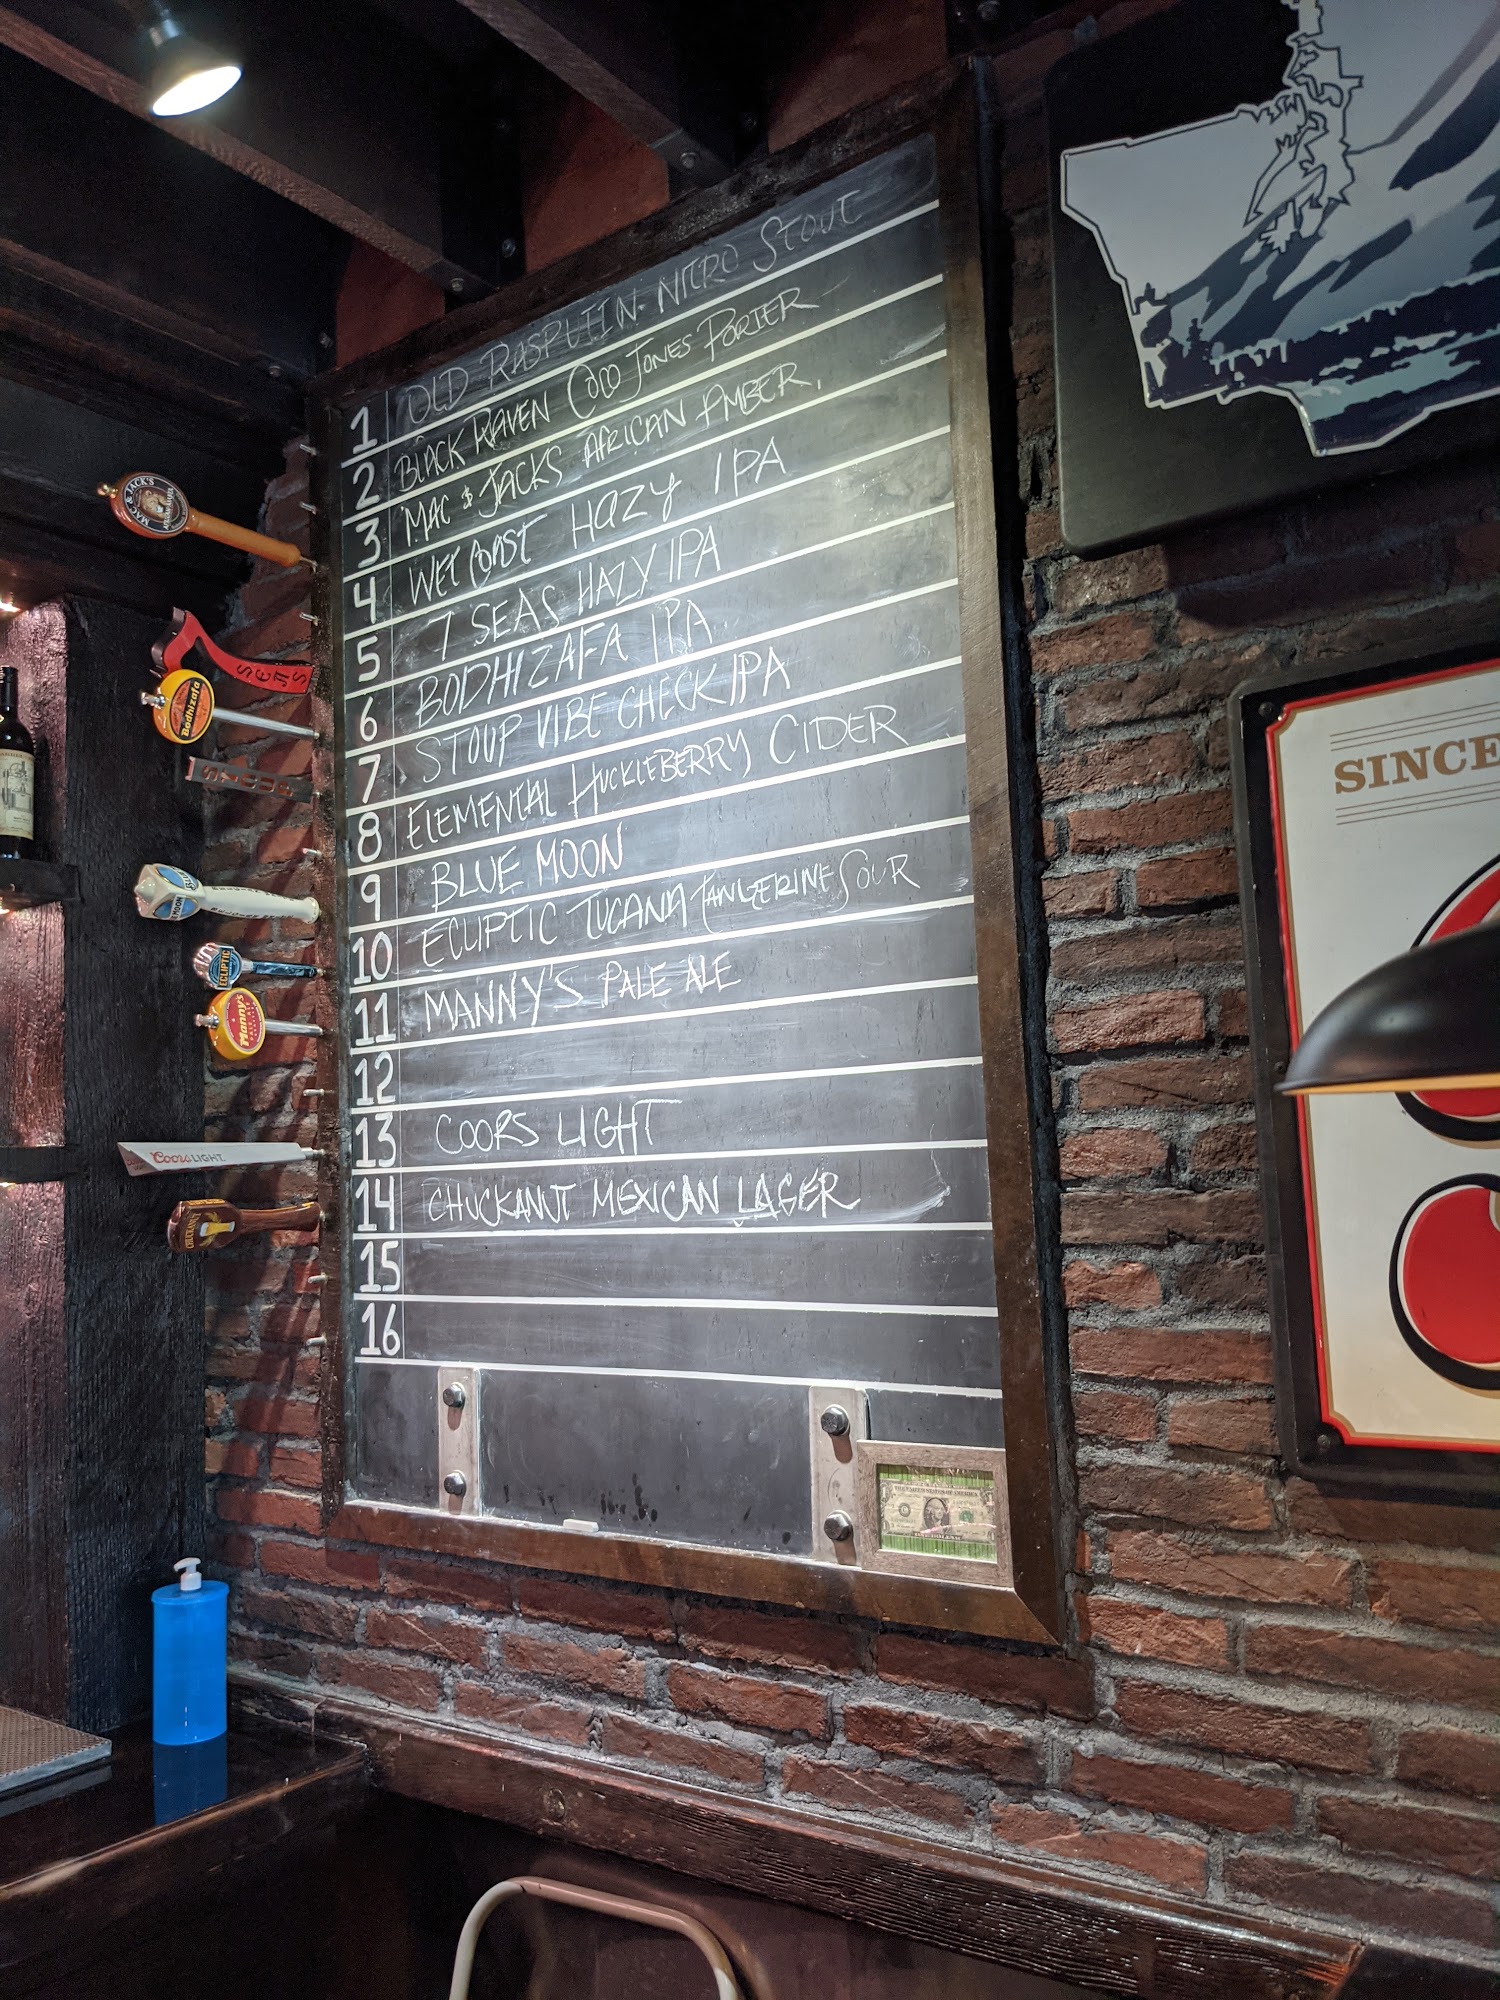 1 OLD RASPUTIN NITRO STOUT
2 BLACK RAVEN COCO JONES PORTER
3 MAC & JACKS AFRICAN AMBER.
4 WET COAST HAZY IPA
5 7 SEAS HAZY IPA
6 BODHIZAFA IPA
7 STOUP VIBE CHECK IPA
8 ELEMENTAL HUCKLEBERRY CIDER
9 BLUE MOON
10 ECLIPTIC TUCANA TANGERINE SOUR
11 MANNY'S PALE ALE
12
13 COORS LIGHT
14 CHUCKANUT MEXICAN LAGER
15
16
MAC & JACK'S
SEAS
Bodhizafa
STOUP
BLUE MOON
ECLIPTIC
Manny's
PALE ALE
Coors LIGHT
CHUCKANUT
SINCE
THE UNITED STATES OF AMERICA